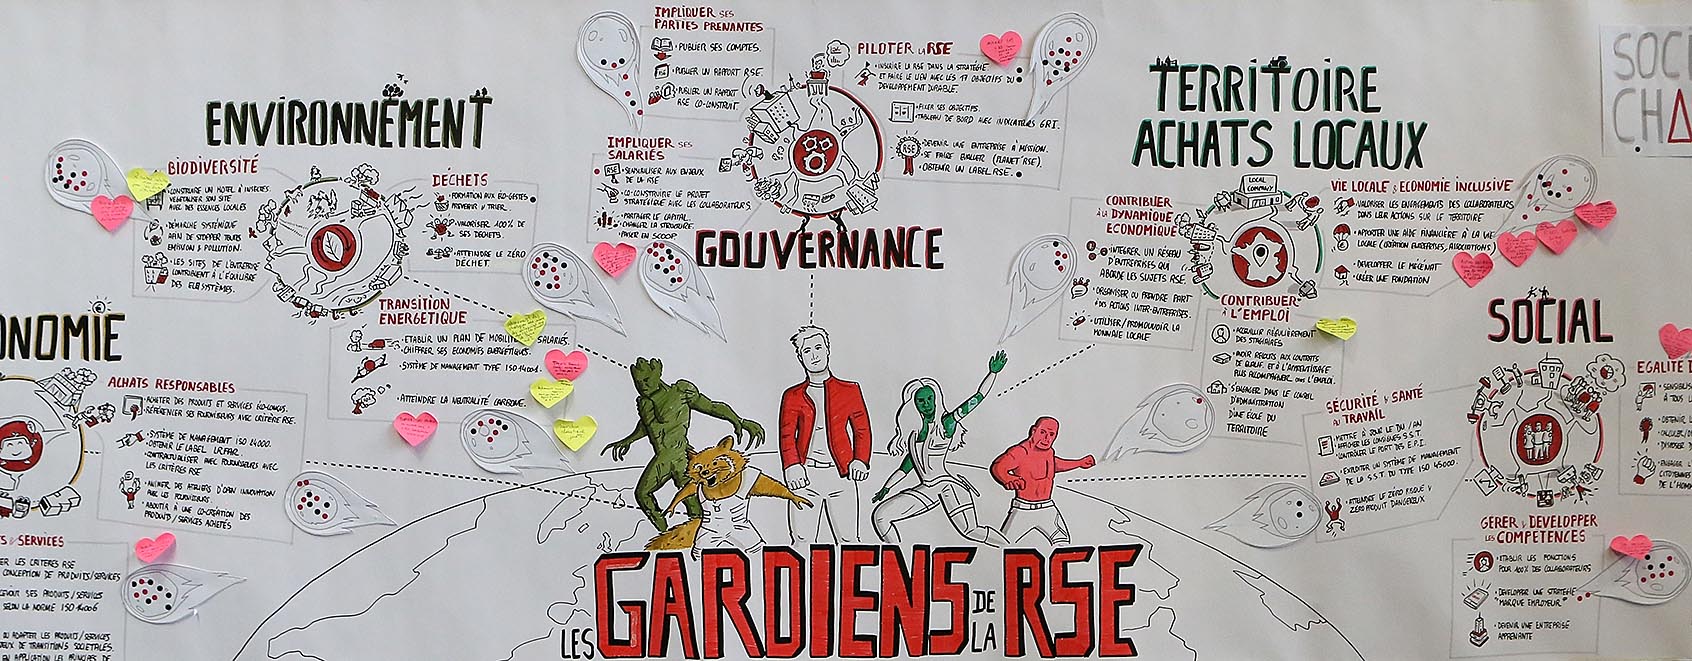 ENVIRONNEMENT
BIODIVERSITÉ
• CONSTRUIRE UN HÔTEL À INSECTES.
VÉGÉTALISER SON SITE
AVEC DES ESSENCES LOCALES
• DÉMARCHE SYSTÉMIQUE
AFIN DE STOPPER TOUTES
EMISSION & POLLUTION.
• LES SITES DE L'ENTREPRISE
CONTRIBUENT À L'ÉQUILIBRE
DES ECOSYSTÈMES.
DÉCHETS
• FORMATION AUX ÉCO-GESTES
PRÉVENIR & TRIER.
• VALORISER 100% DE
SES DÉCHETS.
• ATTEINDRE LE ZÉRO
DÉCHET.
TRANSITION
ENERGÉTIQUE
• ETABLIR UN PLAN DE MOBILITÉ SALARIÉS.
• CHIFFRER SES ECONOMIES ENERGÉTIQUES.
• SYSTÈME DE MANAGEMENT TYPE ISO 14001.
• ATTEINDRE LA NEUTRALITÉ CARBONE.
IMPLIQUER SES
PARTIES PRENANTES
• PUBLIER SES COMPTES.
• PUBLIER UN RAPPORT RSE.
• PUBLIER UN RAPPORT
RSE CO-CONSTRUIT.
IMPLIQUER SES
SALARIÉS
RSE
• SENSIBILISER AUX ENJEUX
DE LA RSE
• CO-CONSTRUIRE LE PROJET
STRATÉGIQUE AVEC LES COLLABORATEURS.
• PARTAGER LE CAPITAL.
CHANGER LA STRUCTURE.
PASSER EN SCOOP.
PILOTER LA RSE
• INSCRIRE LA RSE DANS LA STRATÉGIE
ET FAIRE LE LIEN AVEC LES 17 OBJECTIFS DU
DEVELOPPEMENT DURABLE.
• FIXER SES OBJECTIFS.
• TABLEAU DE BORD AVEC INDICATEURS GRI.
RSE
• DEVENIR UNE ENTREPRISE À MISSION.
• SE FAIRE EVALUER (PLANET'RSE).
• OBTENIR UN LABEL RSE.
GOUVERNANCE
TERRITOIRE
ACHATS LOCAUX
LOCAL
COMPANY
CONTRIBUER
À LA DYNAMIQUE
ECONOMIQUE
• INTÉGRER UN RÉSEAU
D'ENTREPRISES QUI
ABORDE LES SUJETS RSE.
• ORGANISER OU PRENDRE PART
À DES ACTIONS INTER-ENTREPRISES.
• UTILISER/PROMOUVOIR LA
MONNAIE LOCALE
VIE LOCALE & ECONOMIE INCLUSIVE
• VALORISER LES ENGAGEMENTS DES COLLABORATEURS
DANS LEUR ACTIONS SUR LE TERRITOIRE
• APPORTER UNE AIDE FINANCIÈRE À LA VIE
LOCALE (CRÉATION ENTREPRISES, ASSOCIATIONS)
• DEVELOPPER LE MÉCÉNAT
• CRÉER UNE FONDATION
CONTRIBUER
À L'EMPLOI
• ACCUEILLIR RÉGULIÈREMENT
DES STAGIAIRES
• AVOIR RECOURS AUX CONTRATS
DE QUALIF. ET À L'APPRENTISSAGE
PLUS ACCOMPAGNEMENT DANS L'EMPLOI.
• S'ENGAGER DANS LE CONSEIL
D'ADMINISTRATION
D'UNE ÉCOLE DU
TERRITOIRE
SOCI
CHA
ONOMIE
ACHATS RESPONSABLES
• ACHETER DES PRODUITS ET SERVICES ÉCO-CONÇUS.
• RÉFÉRENCER SES FOURNISSEURS AVEC CRITÈRE RSE.
• SYSTÈME DE MANAGEMENT ISO 14000.
• OBTENIR LE LABEL
• CONTRACTUALISER AVEC FOURNISSEURS AVEC
LES CRITÈRES RSE
• ANIMER DES ATELIERS D'OPEN INNOVATION
AVEC LES FOURNISSEURS.
• ABOUTIR À UNE CO-CRÉATION DES
PRODUITS/SERVICES ACHETÉS
& SERVICES
ER LES CRITÈRES RSE
CONCEPTION DE PRODUITS/SERVICES
CEVOIR SES PRODUITS/SERVICES
SELON LA NORME ISO 14006
OU ADAPTER LES PRODUITS/SERVICES
DE TRANSITIONS SOCIETALES.
EN APPLICATION LES PRINCIPES DE
SOCIAL
SÉCURITÉ & SANTÉ
AU TRAVAIL
• METTRE À JOUR LE DU / AN
AFFICHER LES CONSIGNES S.S.T.
CONTRÔLER LE PORT DES E.P.I.
• EXPLOITER UN SYSTÈME DE MANAGEMENT
DE LA S.S.T. DU TYPE ISO 45000.
• ATTEINDRE LE ZÉRO RISQUE &
ZÉRO PRODUIT DANGEREUX
EGALITÉ
• SENSIBILIS
À TOUS
• OBTENIR
• CALCULER
• ENGAGER
CITOYENNES
DE L'HOMM
GÉRER & DEVELOPPER
LES COMPÉTENCES
• ETABLIR LES FONCTIONS
POUR 100% DES COLLABORATEURS
• DEVELOPPER UNE STRATÉGIE
"MARQUE EMPLOYEUR"
• DEVENIR UNE ENTREPRISE
APPRENANTE
LES GARDIENS DE LA RSE